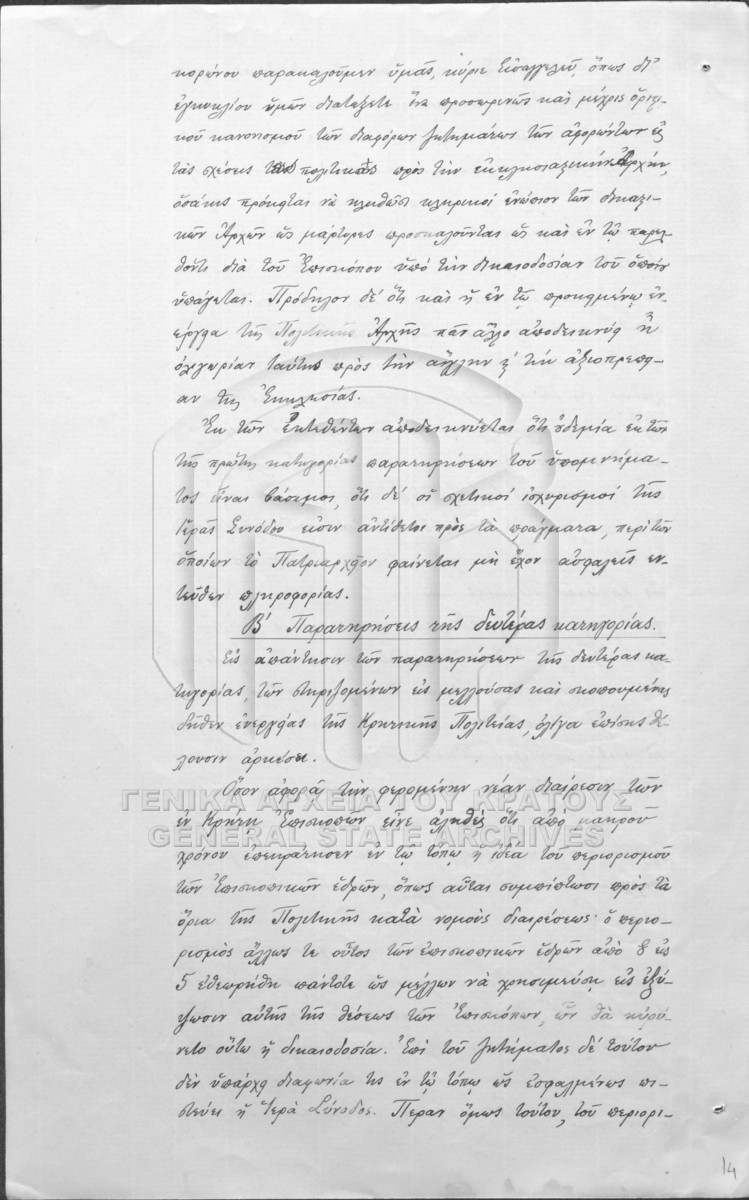 κορώνου παρακαλοῦμεν ὑμᾶς, κύριε Εἰσαγγελεῦ, ὅπως δι'
ἐγκυκλίου ὑμῶν διατάξετε ἵνα προσωρινῶς καὶ μέχρις ὁριστι-
κοῦ κανονισμοῦ τῶν διαφόρων ζητημάτων τῶν ἀφορώντων εἰς
τὰς σχέσεις τῆς πολιτικῆς πρὸς τὴν ἐκκλησιαστικὴν Ἀρχήν,
ὁσάκις πρόκηται νὰ κληθῶσι κληρικοὶ ἐνώπιον τῶν δικαστι-
κῶν Ἀρχῶν ὡς μάρτυρες προσκαλοῦνται ὡς καὶ ἐν τῷ παρελ-
θόντι διὰ τοῦ Ἐπισκόπου ὑπὸ τὴν δικαιοδοσίαν τοῦ ὁποίου
ὑπάγεται. Πρόδηλον δὲ ὅτι καὶ ἡ ἐν τῷ προκειμένῳ ἐν-
έργεια τῆς Πολιτικῆς Ἀρχῆς πᾶν ἄλλο ἀποδεικνύει ἢ
ὀλιγωρίαν ταύτης πρὸς τὴν αἴγλην κ' τὴν ἀξιοπρέπει-
αν τῆς Ἐκκλησίας.
Ἐκ τῶν ἐκτεθέντων ἀποδεικνύεται ὅτι οὐδεμία ἐκ τῶν
τῆς πρώτης κατηγορίας παρατηρήσεων τοῦ ὑπομνήμα-
τος εἶναι βάσιμος, ὅτι δὲ οἱ σχετικοὶ ἰσχυρισμοὶ τῆς
Ἱερᾶς Συνόδου εἰσὶν ἀντίθετοι πρὸς τὰ πράγματα, περὶ τῶν
ὁποίων τὸ Πατριαρχεῖον φαίνεται μὴ ἔχον ἀσφαλεῖς εν-
τεῦθεν πληροφορίας.
Β' Παρατηρήσεις τῆς δευτέρας κατηγορίας.
Εἰς ἀπάντησιν τῶν παρατηρήσεων τῆς δευτέρας κα-
τηγορίας, τῶν στηριζομένων εἰς μελλούσας καὶ σκοπουμένας
δῆθεν ἐνεργείας τῆς Κρητικῆς Πολιτείας, ὀλίγα ἐπίσης θέ-
λουσιν ἀρκέσει.
Ὅσον ἀφορᾷ τὴν φερομένην νέαν διαίρεσιν τῶν
ἐν Κρήτῃ Ἐπισκοπῶν εἶνε ἀληθὲς ὅτι ἀπὸ μακροῦ
χρόνου ἐπεκράτησεν ἐν τῷ τόπῳ ἡ ἰδέα τοῦ περιορισμοῦ
τῶν Ἐπισκοπικῶν ἑδρῶν, ὅπως αὗται συμπίπτωσι πρὸς τὰ
ὅρια τῆς Πολιτικῆς κατὰ νομοὺς διαιρέσεως· ὁ περιο-
ρισμὸς ἄλλως τε οὗτος τῶν ἐπισκοπικῶν ἑδρῶν ἀπὸ 8 εἰς
5 ἐθεωρήθη πάντοτε ὡς μέλλων νὰ χρησιμεύσῃ εἰς ἐξύ-
ψωσιν αὐτῆς τῆς θέσεως τῶν Ἐπισκόπων, ὧν θὰ ηὐρύ-
νετο οὕτω ἡ δικαιοδοσία. Ἐπὶ τοῦ ζητήματος δὲ τούτου
δὲν ὑπάρχει διαφωνία τις ἐν τῷ τόπῳ ὡς ἐσφαλμένως πι-
στεύει ἡ Ἱερὰ Σύνοδος. Πέραν ὅμως τούτου, τοῦ περιορι-
14
ΓΕΝΙΚΑ ΑΡΧΕΙΑ ΤΟΥ ΚΡΑΤΟΥΣ
GENERAL STATE ARCHIVES